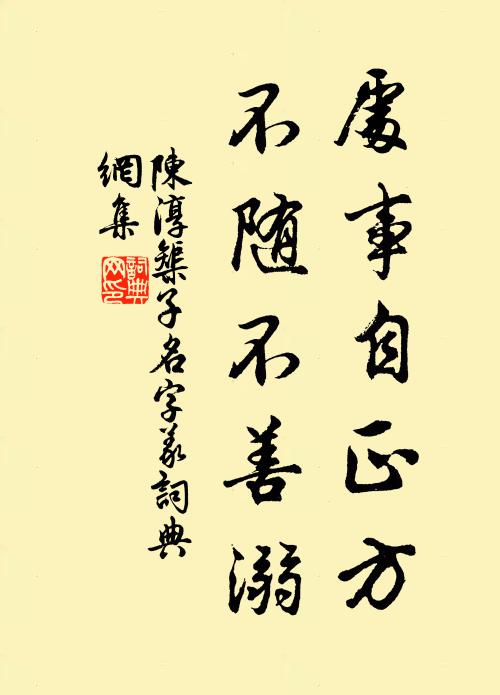 處事自正方
不随不善溺
陳淳集子名字義詞典
網集
詞典網印